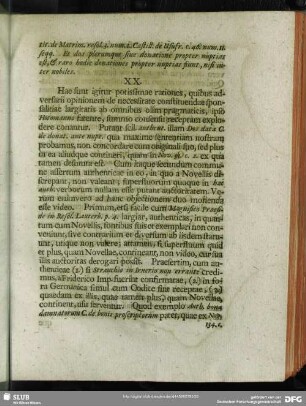 tit. de Matrim. resol. 4. num. 1. Castill. de Usufr. c. 48. num. 11.
seqq. Et dos plerumque sine donatione propter nuptias
est, & raro hodie donationes propter nuptias fiunt, nisi in-
ter nobiles.
XX.
Hae sunt igitur potissimae rationes, quibus ad-
versarii opinionem de necessitate constituendae spon-
salitiae largitatis ab omnibus olim pragmaticis, ipso
Hotmanno fatente, summo consensu receptam explo-
dere conantur. Putant scil. authent. illam Dos data C.
de donat. ante nupt. qua maxime opinionem nostram
probamus, non concordare cum originali suo, sed plus
in ea aliudque contineri, quam in Nov. 91. c. 2. ex qua
tamen desumta est. Cum itaque secundum commu-
ne assertum authenticae in eo, in quo a Novellis di-
screpant, non valeant; superfluorum quoque in hac
auth. verborum nullam esse putant auctoritatem. Ve-
rum enimvero ad hanc objectionem duo monenda
esse video. Primum, est facile cum Magnifico Praesi-
de in Resol. Lauterb. p. largiar, authenticas, in quan-
tum cum Novellis, fontibus suis et exemplari non con-
veniunt, sive contrarium et diversum ab iisdem statua-
tur, unique non valere; attamen, si superfluum quid
et plus, quam Novellae, contineant, non video, cur sua
illis auctoritas derogari possit. Praesertim, cum au-
thenticae (1) si Strauchio im Irnerio non errante credi-
mus, a Friderico Imp. fuerint confirmatae, (2) in fo-
ra Germanica simul cum Codice sint receptae, (3) ad
quaedam ex illis, quae tamen plus, quam Novellae,
continent, usu serventur. Quod exemplo auth. bona
damnatorum C. de bonis proscriptorum patet, quae ex Nov.
134. c.
SLUB
DFG